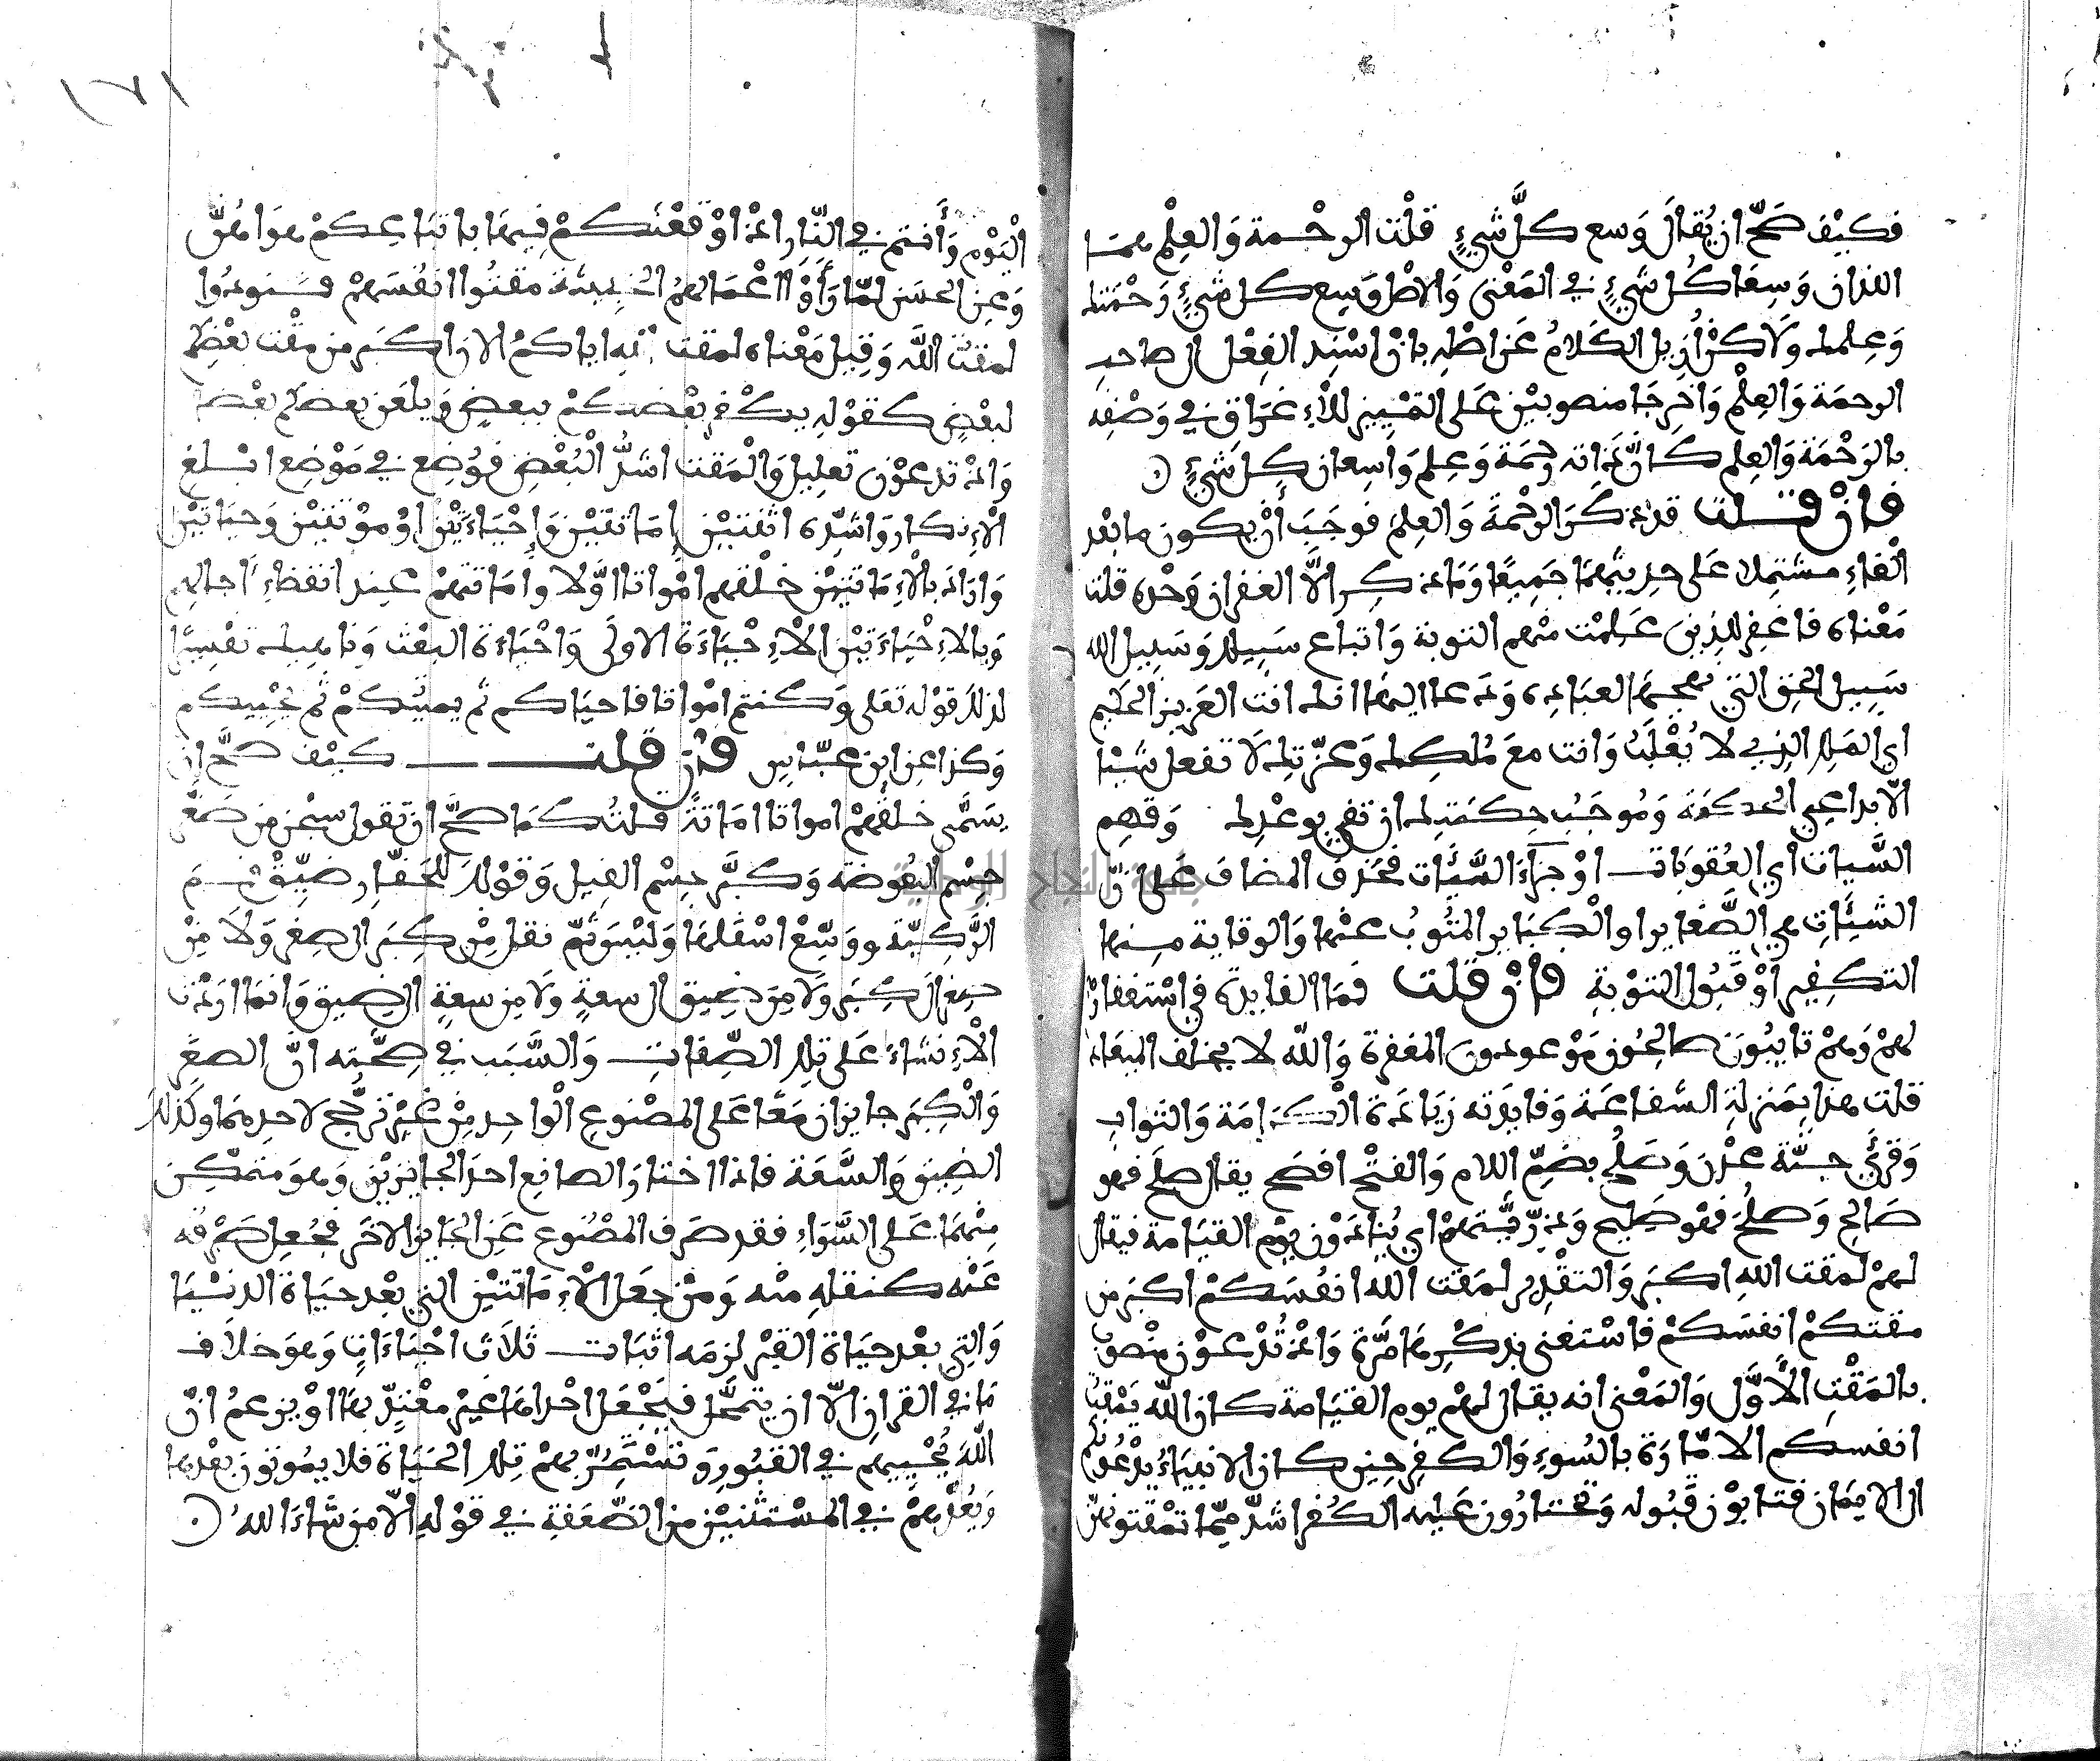 فكيف صح ان يقال وسع كل شيء قلت الرحمة والعلم هما
اللذان وسعا كل شيء في المعنى والاصل وسع كل شيء رحمتك
وعلمك ولاكن ازيل الكلام عن اصله بان اسند الفعل الى صاحب
الرحمة والعلم واخرجا منصوبين على التمييز للاغراق في وصفه
بالرحمة والعلم كان ذاته رحمة وعلم واسعان كل شيء
فان قلت قد ذكر الرحمة والعلم فوجب أن يكون ما بعد
الفاء مشتملا على حديثهما جميعا وما ذكر الا الغفران وحده قلت
معناه فاغفر للذين علمت منهم التوبة واتباع سبيلك وسبيل الله
سبيل الحق التي نهجها لعباده ودعا اليها انك انت العزيز الحكيم
اي الملك الذي لا يغلب وانت مع ملكك وعزتك لا تفعل شيئا
الا بداعي الحكمة وموجب حكمتك ان تفي بوعدك وقهم
السيات أي العقوبات او جزاء السيئات فحذف المضاف على ان
السيئات هي الصغاير او الكباير المتوب عنها والوقاية منها
التكفير او قبول التوبة فان قلت فما الفايدة في استغفار
لهم وهم تايبون صالحون موعودون المغفرة والله لا يخلف الميعاد
قلت هذا بمنزلة الشفاعة وفايدته زيادة الكرامة والثواب
وقرئ جنة عدن وصلح بضم اللام والفتح افصح يقال صلح فهو
صالح وصلح فهو صليح وذريتهم اي ينادون يوم القيامة فيقال
لهم لمقت الله اكبر والتقدير لمقت الله انفسكم اكبر من
مقتكم انفسكم فاستغنى بذكرها مرة واذ تدعون منصوب
بالمقت الأول والمعنى انه يقال لهم يوم القيامة كان الله يمقت
انفسكم الامارة بالسوء والكفر حين كان الانبياء يدعونكم
الى الايمان فتابون قبوله وتختارون عليه الكفر اشد مما تمقتونهن
اليوم وأنتم في النار اذ اوقعتكم فيها باتباعكم هواهن
وعن الحسن لما رأوا اعمالهم الخبيثة مقتوا انفسهم فنودوا
لمقت الله وقيل معناه لمقت الله اياكم الان اكبر من مقت بعضكم
لبعض كقوله يكفر بعضكم ببعض ويلعن بعضكم بعضا
واذ تدعون تعليل والمقت اشد البغض فوضع في موضع ابلغ
الانكار واشده اثنتين اماتتين واحياءتين او موتتين وحياتين
واراد بالاماتتين خلقهم امواتا اولا وأماتتهم عند انقضاء اجالهم
وبالاحياءتين الاحياءة الاولى واحياءة البعث وناهيك تفسيرا
لذلك قوله تعلى وكنتم امواتا فاحياكم ثم يميتكم ثم يحييكم
وكذا عن ابن عباس فان قلت كيف صح ان
يسمى خلقهم امواتا اماتة قلت كما صح ان تقول سبحن من صغر
جسم البعوضة وكبر جسم الفيل وقولك للحفار ضيق فم
الركية ووسع اسفلها وليس ثم نقل من كبر الى صغر ولا من
صغر الى كبر ولا من ضيق الى سعة ولا من سعة الى ضيق وانما اردت
الانشاء على تلك الصفات والسبب في صحته ان الصغر
والكبر جايزان معا على المصنوع الواحد من غير ترجح لاحدهما وكذلك
الضيق والسعة فاذا اختار الصانع احد الجايزين وهو متمكن
منهما على السواء فقد صرف المصنوع عن الجايز الاخر فجعل صرفه
عنه كنقله منه ومن جعل الاماتتين التي بعد حياة الدنيا
والتي بعد حياة القبر لزمه اثبات ثلاث احياءات وهو خلاف
ما في القران الا ان يتمحل فيجعل احداها غير معتد بها او يزعم ان
الله يحييهم في القبور وتستمر بهم تلك الحياة فلا يموتون بعدها
ويعدهم في المستثنين من الصعقة في قوله الا من شاء الله